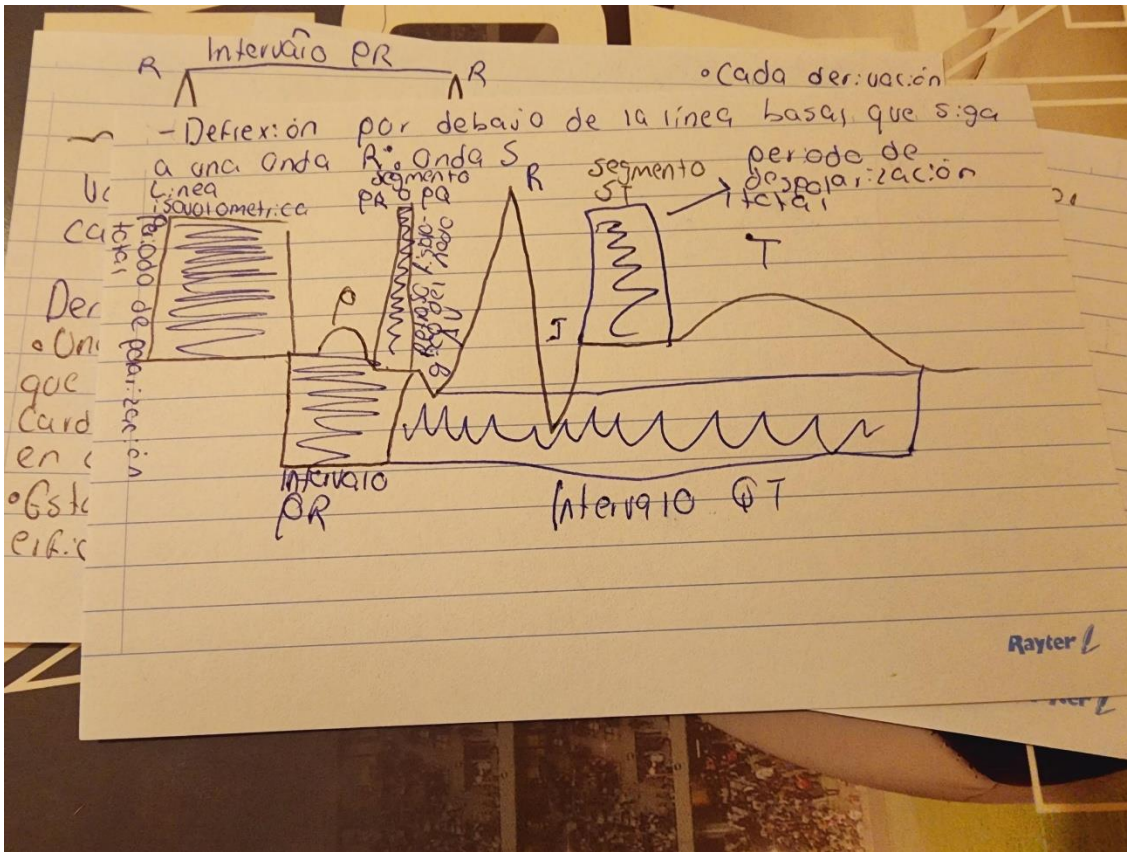 Intervalo PR
R R
• Cada derivación
- Deflexión por debajo de la línea basal que siga
a una Onda R: Onda S
Línea
isovolometrica
Periodo de polarización
total
segmento
PR o PQ
R
segmento
ST
periodo de
despolarización
total
T
P
J
Intervalo
PR
Intervalo QT
Vo
ca
Der
• On
que
Card
en c
• Esto
Rayter